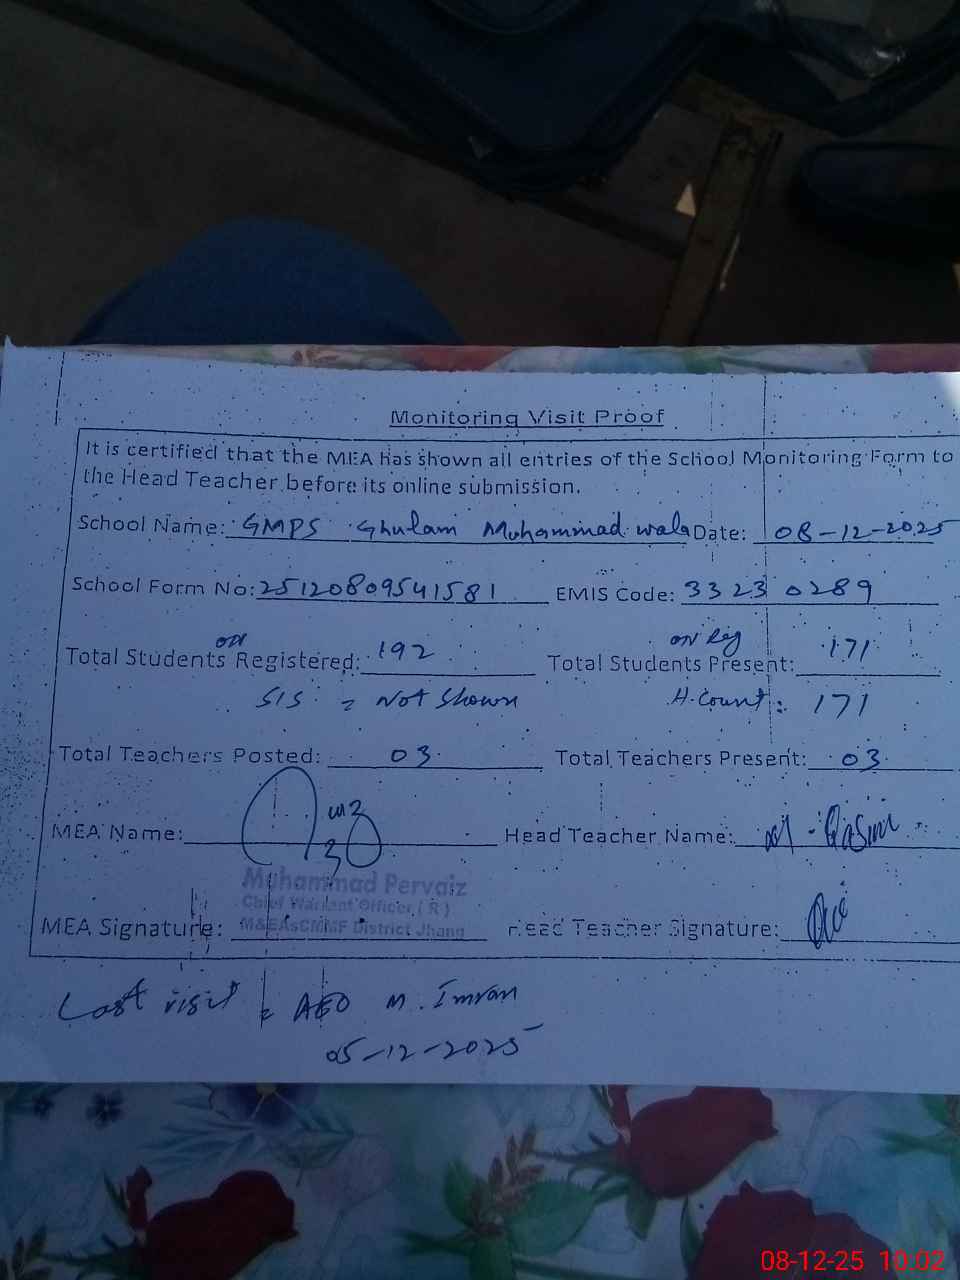 Monitoring Visit Proof
It is certified that the MEA has shown all entries of the School Monitoring Form to
the Head Teacher before its online submission.
School Name: GMPS Ghulam Muhammad wala Date: 08-12-2025
School Form No: 25120809541581 EMIS Code: 33230289
on on Reg
Total Students Registered: 192 Total Students Present: 171
SIS = Not Shown H.Count: 171
Total Teachers Posted: 03 Total Teachers Present: 03
MEA Name: Head Teacher Name: M. Qasim
Muhammad Pervaiz
Chief Warrant Officer ( R )
MEA Signature: M&EAsCMMF District Jhang Head Teacher Signature:
Last visit = AEO M. Imran
05-12-2025
08-12-25 10:02